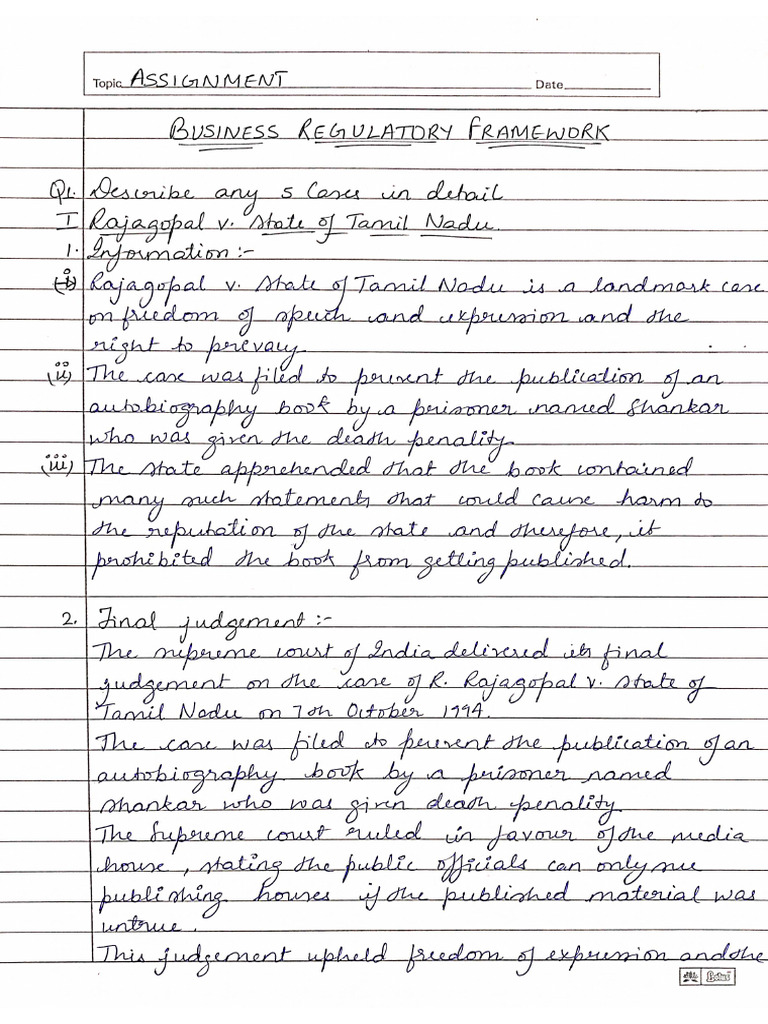 Topic ASSIGNMENT Date
BUSINESS REGULATORY FRAMEWORK
Q1. Describe any 5 Cases in detail
I Rajagopal v. State of Tamil Nadu.
1. Information :-
(i) Rajagopal v. State of Tamil Nadu is a landmark case
on freedom of speech and expression and the
right to prevacy.
(ii) The case was filed to prevent the publication of an
autobiography book by a prisoner named Shankar
who was given the death penality.
(iii) The state apprehended that the book contained
many such statements that could cause harm to
the reputation of the state and therefore, it
prohibited the book from getting published.
2. Final judgement :-
The supreme court of India delivered its final
judgement on the case of R. Rajagopal v. State of
Tamil Nadu on 7th October 1994.
The case was filed to perevent the publication of an
autobiography book by a prisoner named
Shankar who was given death penality.
The Supreme court ruled in favour of the media
house, stating the public officials can only sue
publishing houses if the published material was
untrue.
This judgement upheld freedom of expression and the